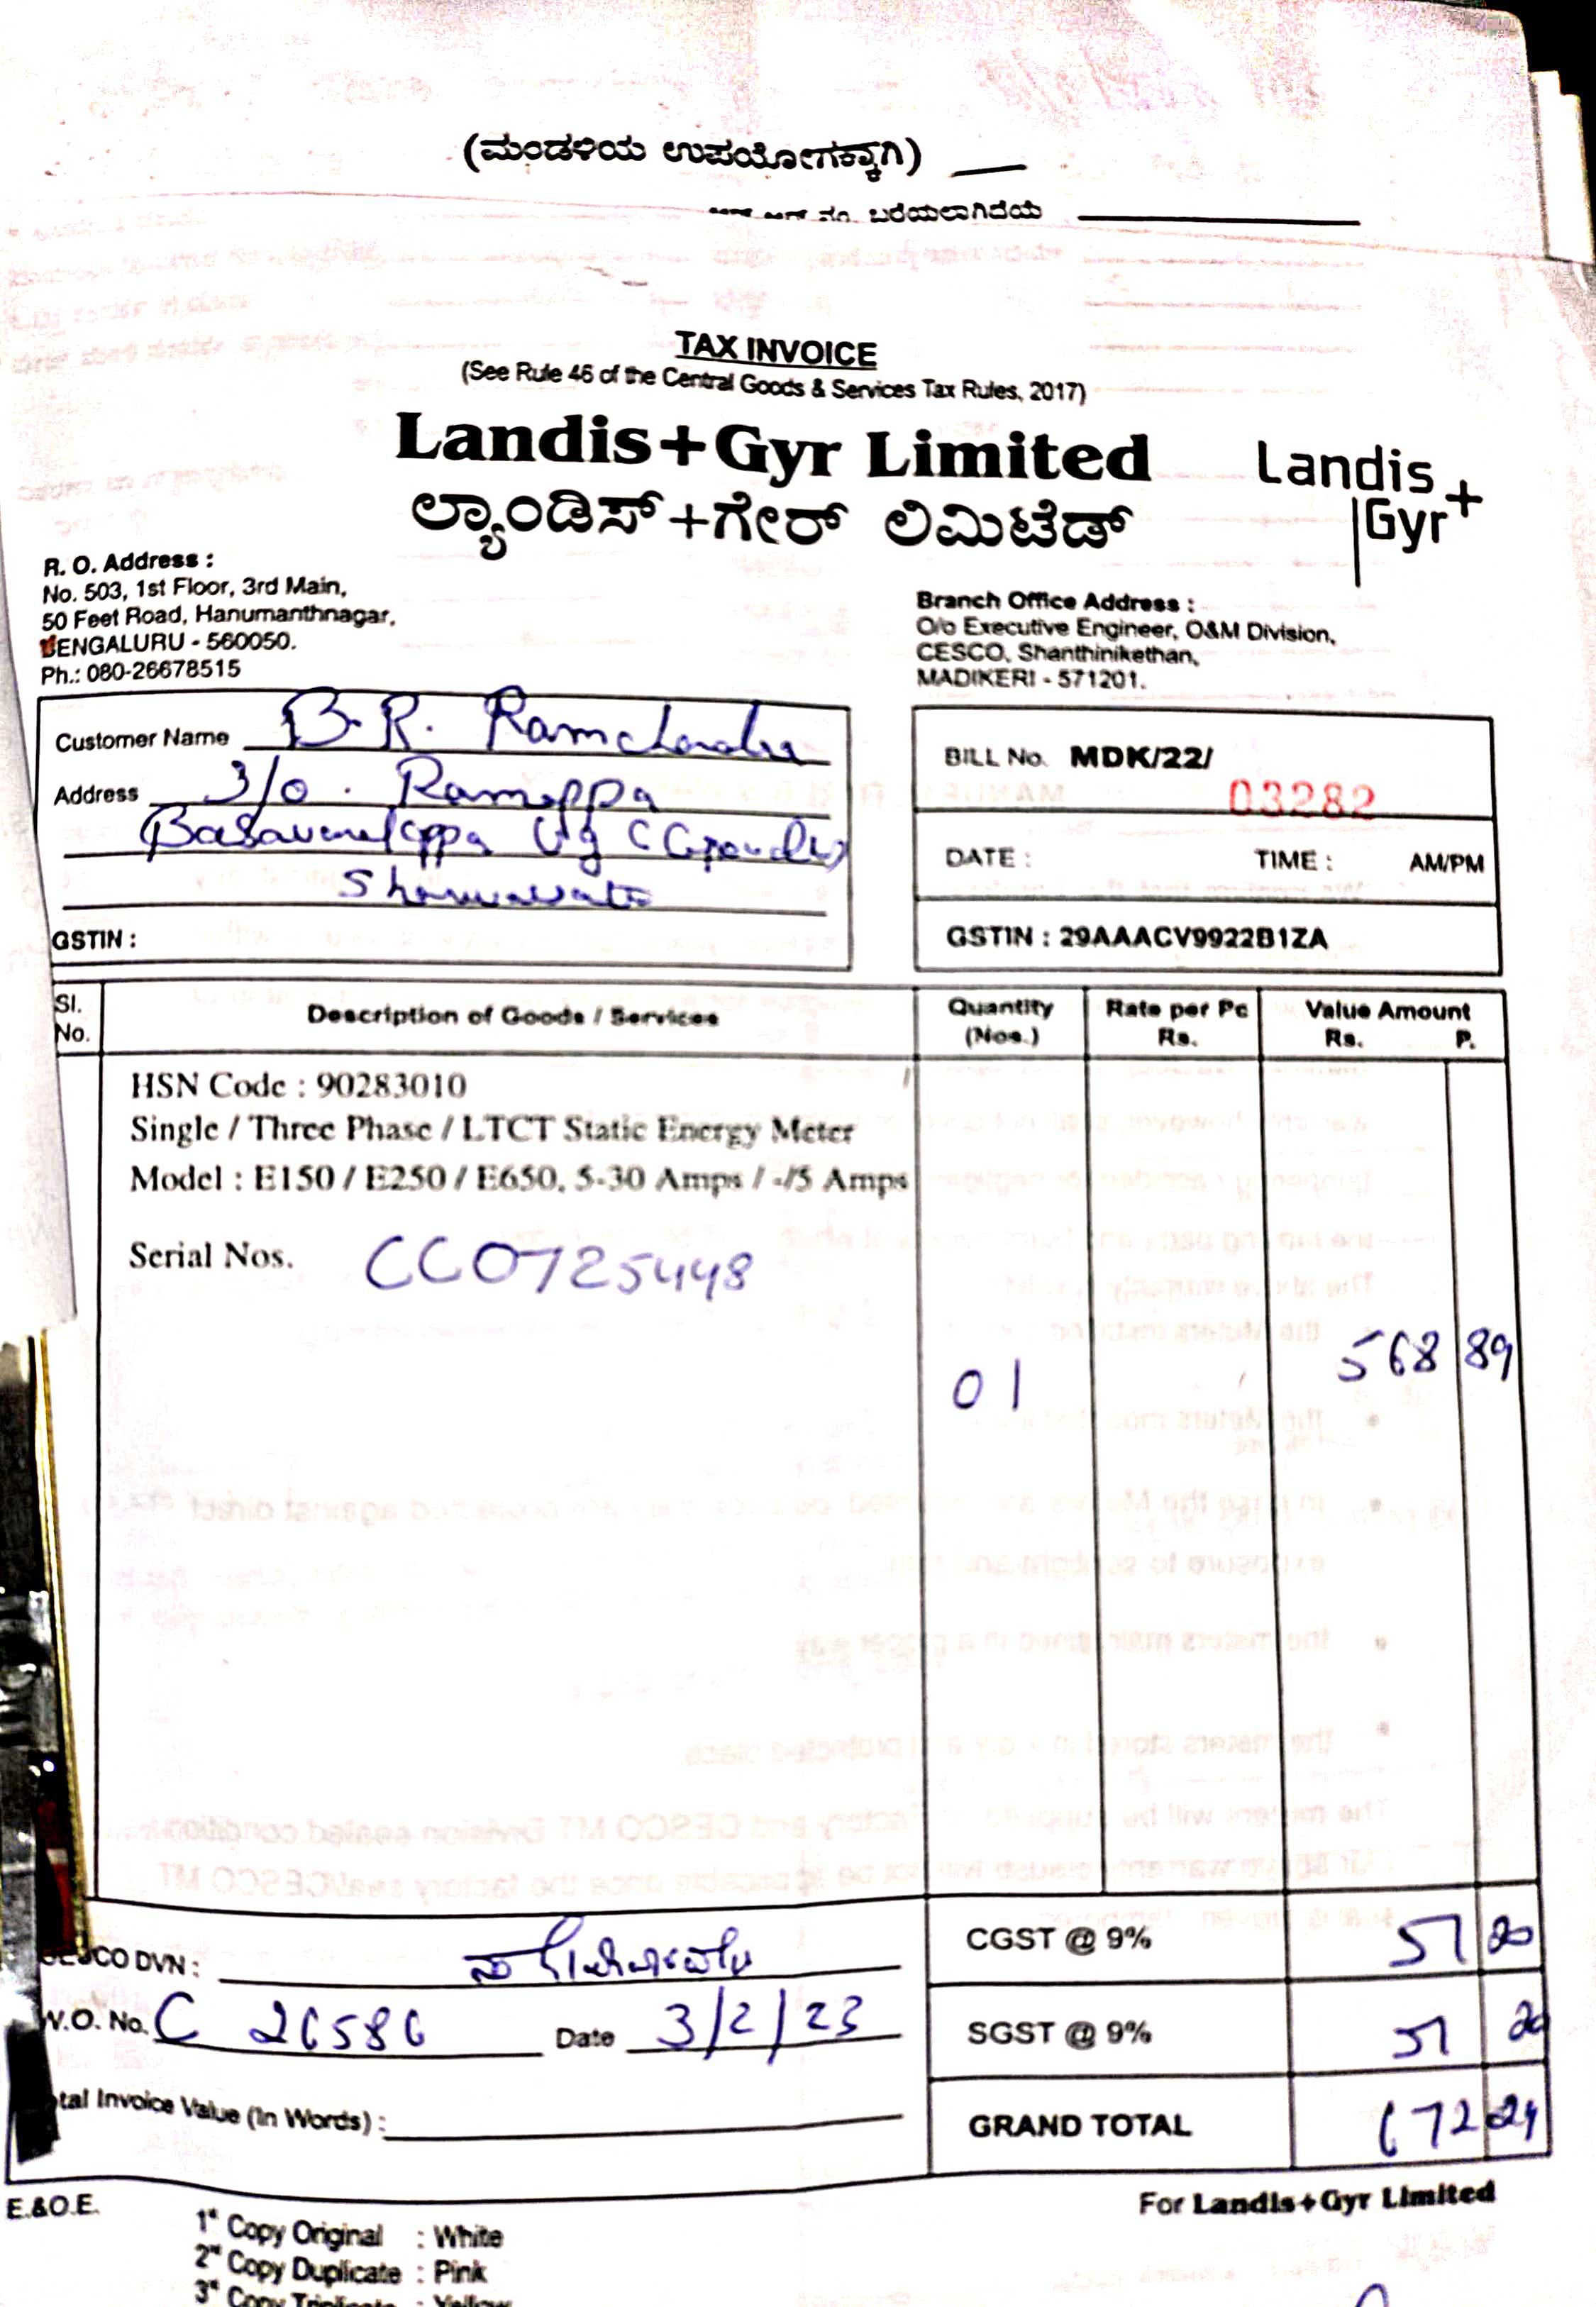 (ಮಂಡಳಿಯ ಉಪಯೋಗಕ್ಕಾಗಿ)
ನಂ. ಬರೆಯಲಾಗಿದೆಯೆ
TAX INVOICE
(See Rule 46 of the Central Goods & Services Tax Rules, 2017)
Landis+Gyr Limited
Landis
Gyr+
ಲ್ಯಾಂಡಿಸ್+ಗೇರ್ ಲಿಮಿಟೆಡ್
R. O. Address :
No. 503, 1st Floor, 3rd Main,
50 Feet Road, Hanumanthnagar,
BENGALURU - 560050.
Ph.: 080-26678515
Branch Office Address :
O/o Executive Engineer, O&M Division,
CESCO, Shanthinikethan,
MADIKERI - 571201.
Customer Name B.R. Ramchandra
Address S/o. Rameppa
GSTIN :
BILL No. MDK/22/
03282
DATE : TIME : AM/PM
GSTIN : 29AAACV9922B1ZA
Sl. No. Description of Goods / Services Quantity (Nos.) Rate per Pc Rs. Value Amount Rs. P.
HSN Code : 90283010
Single / Three Phase / LTCT Static Energy Meter
Model : E150 / E250 / E650, 5-30 Amps / -/5 Amps
Serial Nos. CC0725448
01 568 89
CGST @ 9% 51 20
DVN :
W.O. No. C 26586 Date 3/2/23
SGST @ 9% 51 20
Invoice Value (In Words) :
GRAND TOTAL 672 24
E.&O.E.
For Landis+Gyr Limited
1st Copy Original : White
2nd Copy Duplicate : Pink
3rd Copy Triplicate : Yellow